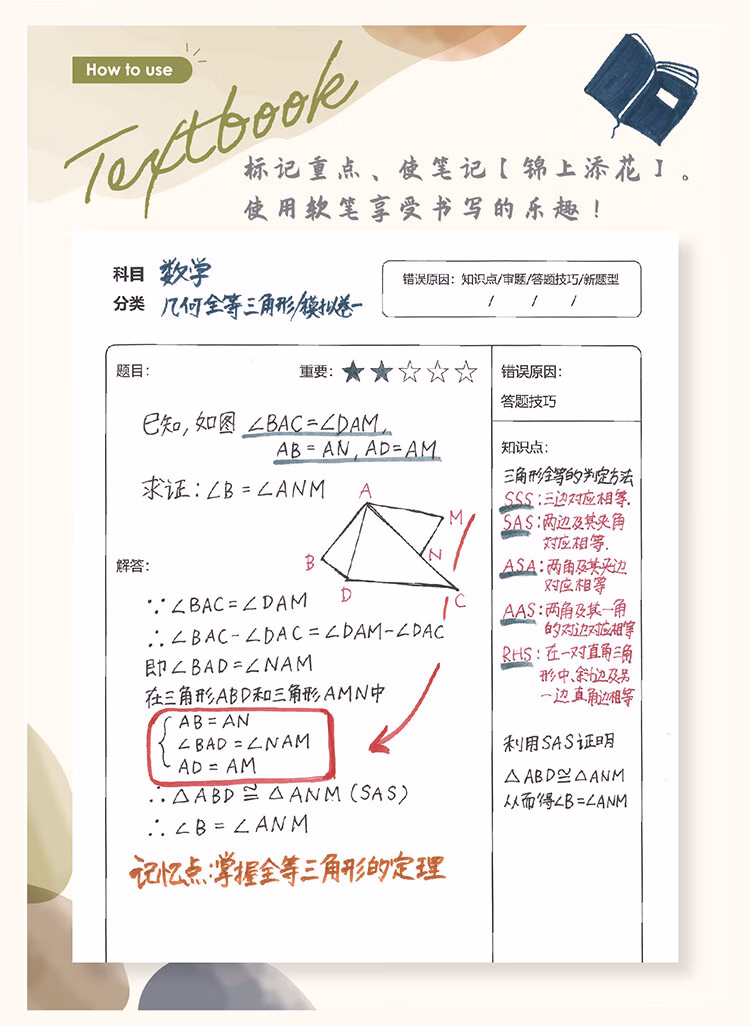 How to use
Textbook
标记重点、使笔记【锦上添花】。
使用软笔享受书写的乐趣！
科目 数学
分类 几何全等三角形/模拟卷一
错误原因：知识点/审题/答题技巧/新题型
/ / /
题目：
重要：★★☆☆☆
已知，如图 ∠BAC=∠DAM,
AB=AN, AD=AM
求证：∠B=∠ANM
A
M
B
N
D
C
解答：
∵∠BAC=∠DAM
∴∠BAC-∠DAC=∠DAM-∠DAC
即∠BAD=∠NAM
在三角形ABD和三角形AMN中
AB=AN
∠BAD=∠NAM
AD=AM
∴△ABD≌△ANM(SAS)
∴∠B=∠ANM
记忆点：掌握全等三角形的定理
错误原因：
答题技巧
知识点：
三角形全等的判定方法
SSS：三边对应相等.
SAS：两边及其夹角
对应相等.
ASA：两角及其夹边
对应相等
AAS：两角及其一角
的对边对应相等
RHS：在一对直角三角
形中、斜边及另
一边直角边相等
利用SAS证明
△ABD≌△ANM
从而得∠B=∠ANM